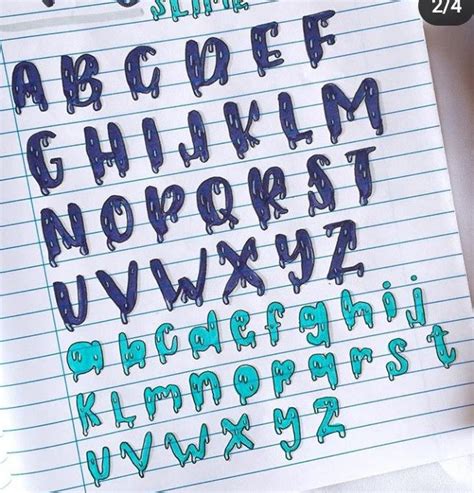 2/4
SLIME
A B C D E F
G H I J K L M
N O P Q R S T
U V W X Y Z
a b c d e f g h i j
K L m n o p q r s t
U V W X Y Z